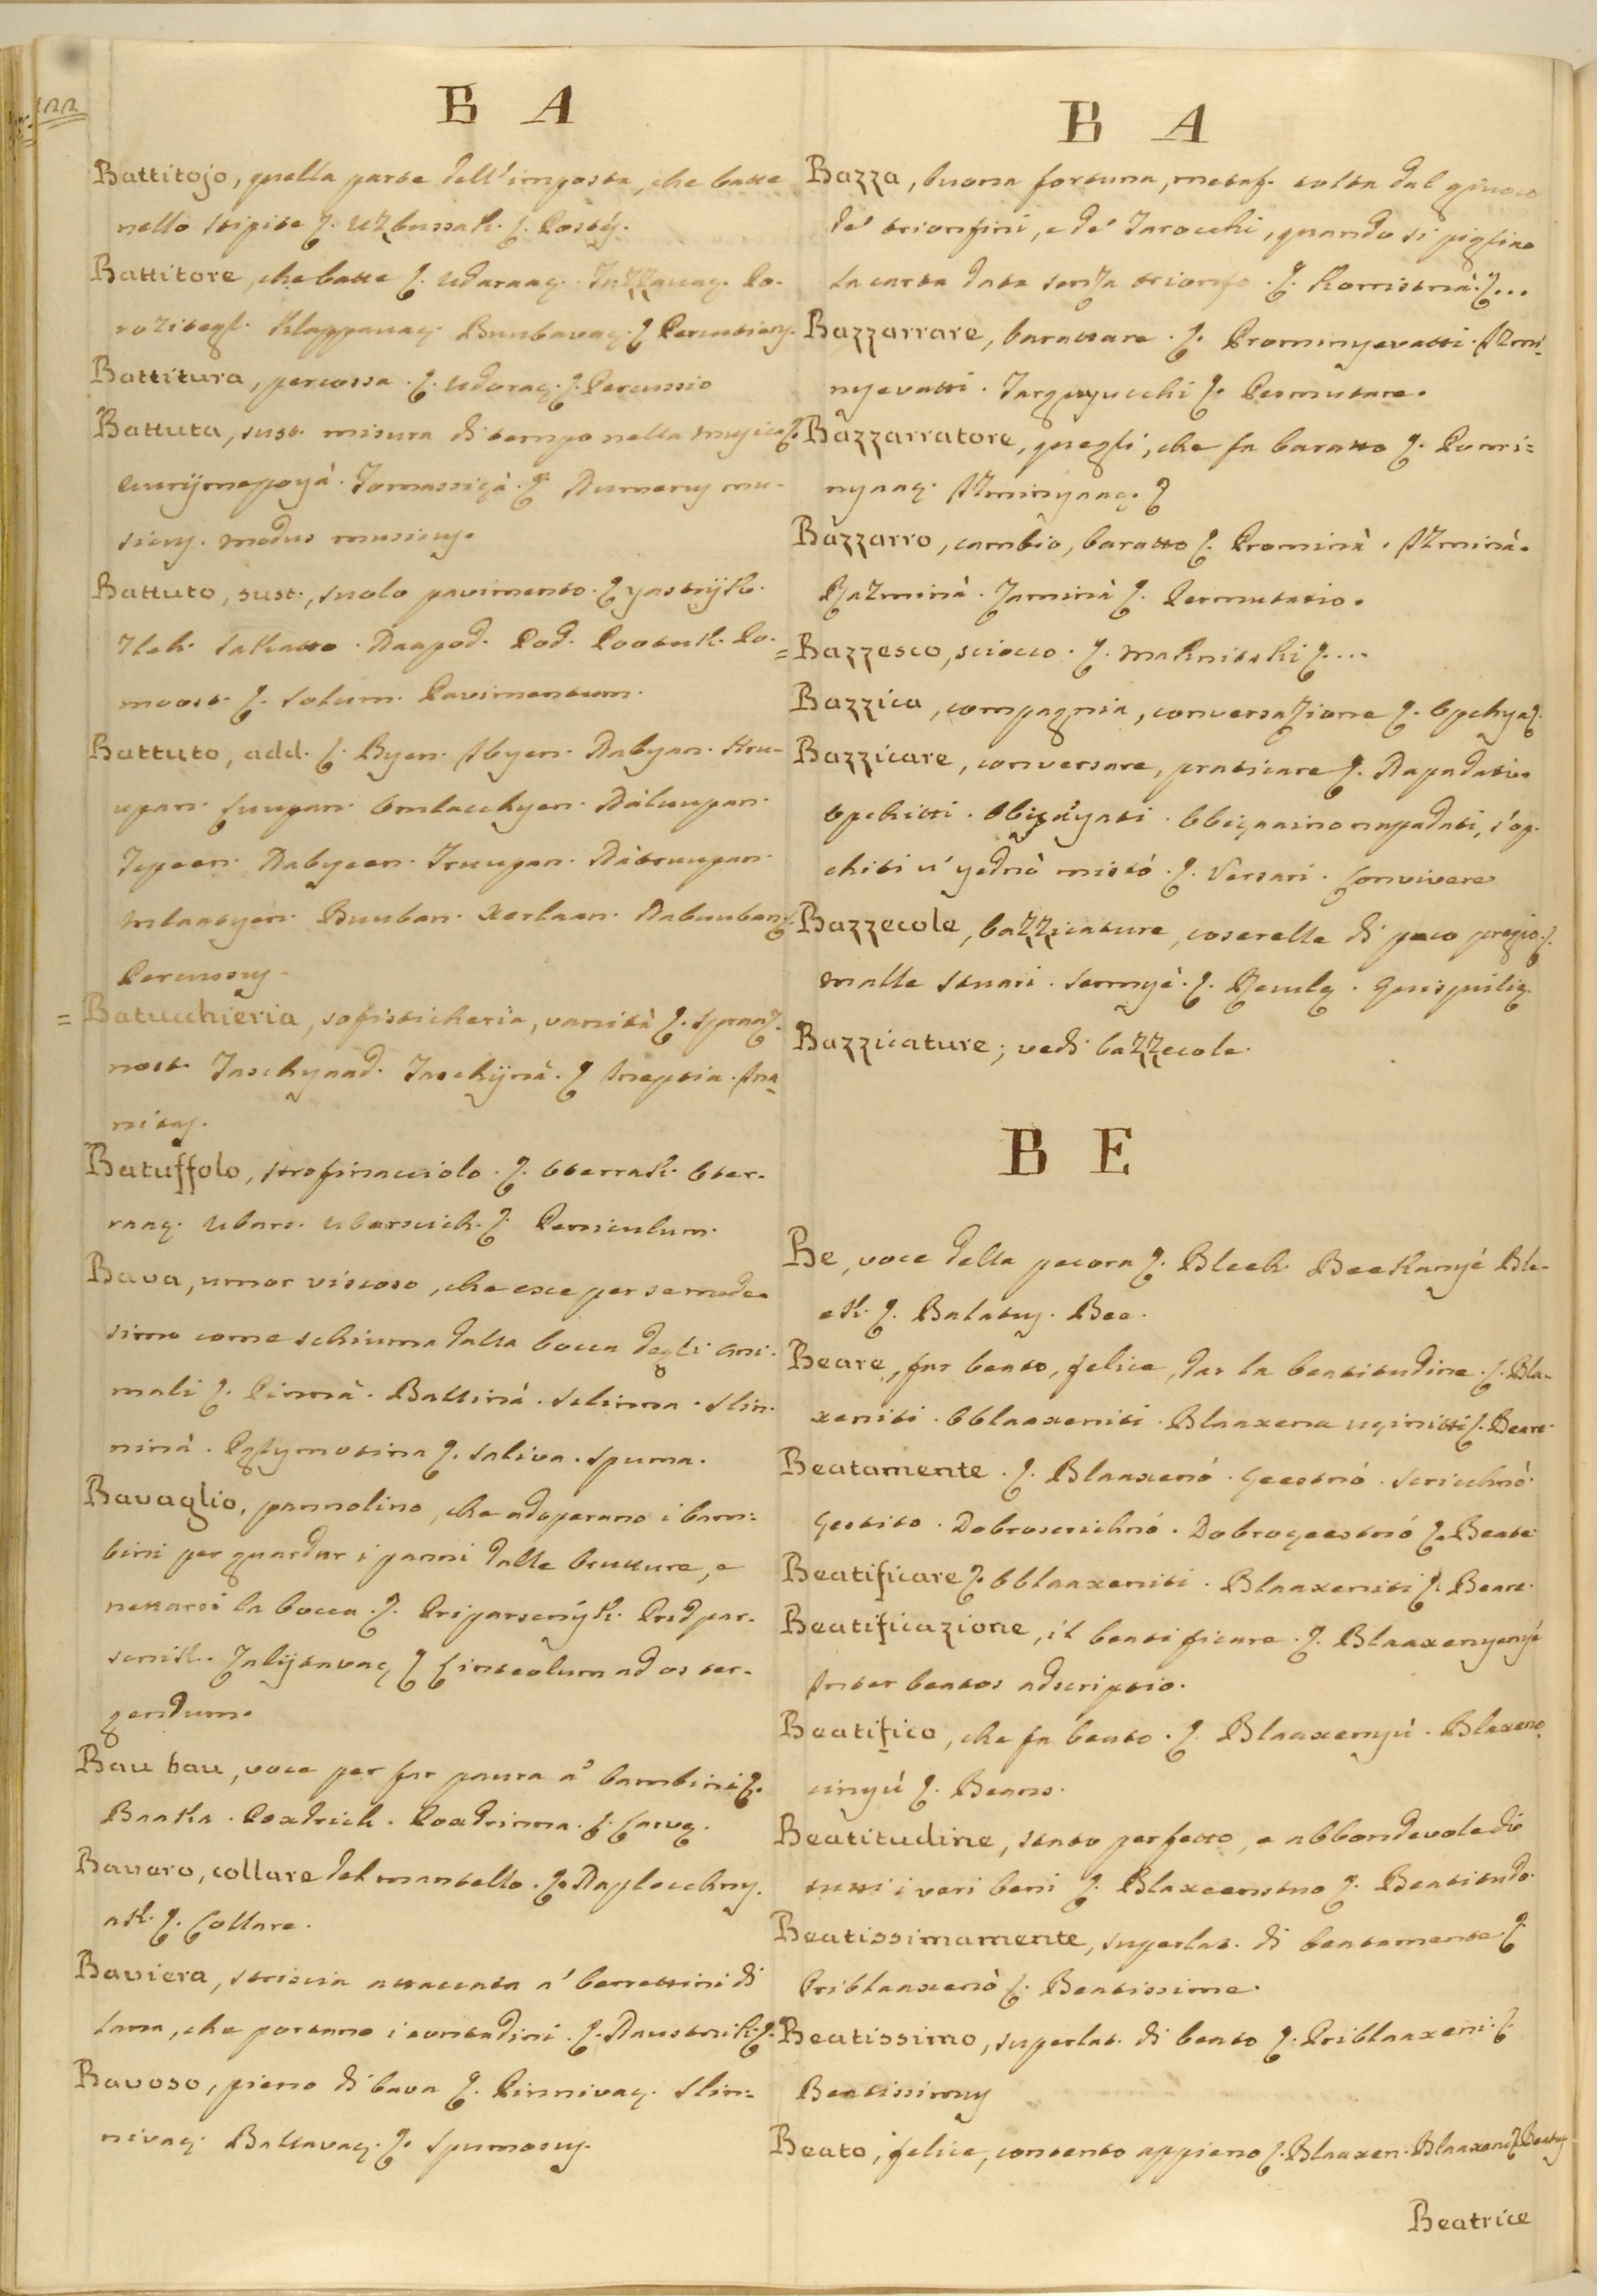 122
B A
Battitojo, quella parte dell'imposta, che batte
nello stipite ʃ. Uzbussak. ʃ. Postis.
Battitore, che batte ʃ. Udaraaç. Po-
Klappavaç. Bunbavaç. ʃ. Percutiens.
Battitura, percossa. ʃ. Udoraç. ʃ. Percussio
Battuta, sust. misura di tempo nella musica ʃ.
ʃ. Numerus mu-
sicus. modus musicus.
Battuto, sust., suolo pavimento. ʃ
Tlek. Sakatto. Naapod. Pod. Po-
moost. ʃ. Solum. Pavimentum.
Battuto, add. ʃ. Byen. Izbyen. Nabyan. Stru-
upan. Luupan. Omlacchyen. Naluupan.
Tepeen. Nabyeen. Truupan. Natruupan.
mlaatyen. Buuban. Xerlaan. Nabuuban ʃ.
Percussus.
= Batucchieria, sofisticheria, vanità ʃ. Spraaz-
nost. Taschyaad. Taschijnà. ʃ Ineptia. Ina-
nitas.
Batuffolo, strofinacciolo. ʃ. Oterrak. Oter-
raaç. Ubars. Ubarscich. ʃ. Peniculum.
Bava, umor viscoso, che esce per se mede-
simo come schiuma dalla bocca degli ani-
mali ʃ. Pinnà. Ballinà. Slinna. Slin-
ninà. ʃ. Saliva. Spuma.
Bavaglio, pannolino, che adoperano i bam-
bini per guardar i panni dalle brutture, e
nettarsi la bocca. ʃ. Priparscnyk. Pridpar-
scnik. Zalijtavaç ʃ Linteolum ad os ter-
gendum.
Bau bau, voce per far paura a' bambini ʃ.
Baaka. Poxdrich. Poxdrinna. ʃ. Larvę.
Bavero, collare del mantello. ʃ. Naplecchny-
ak. ʃ. Collare.
Baviera, striscia attaccata a' berrettini di
lana, che portano i contadini. ʃ. Naustnik ʃ.
Bavoso, pieno di bava ʃ. Pinnivaç. Slin-
nivaç. Ballavaç. ʃ. Spumosus.
B A
Bazza, buona fortuna, metaf. tolta dal giuoco
de' trionfini, e de' Tarocchi, quando si piglia
la carta data senza trionfo. ʃ. Korristnà. ʃ...
Bazzarrare, barattare. ʃ. Prominyevatti. Izmi-
nyevatti. Targguyucchi ʃ. Permutare.
Bazzarratore, quegli, che fa baratto ʃ. Pomi-
nyaaç. Izminyaaç. ʃ
Bazzarro, cambio, baratto ʃ. Prominà. Izminà.
Razminà. Zaminà ʃ. Permutatio.
= Bazzesco, sciocco. ʃ. Maknitski ʃ....
Bazzica, compagnia, conversazione ʃ. Opchya ʃ.
Bazzicare, conversare, praticare ʃ. Napadati.
Opchitti. Obiçayati. Obiçaaino napadati, s'op-
chiti u' yednò mistó. ʃ. Versari. Convivere
Bazzecole, bazzicature, coserelle di poco pregio. ʃ.
Malle stvari. Sermyè. ʃ. Recule. Quisquilię.
Bazzicature; vedi bazzecole.
B E
Be, voce della pecora ʃ. Bleek. Beekanyé Ble-
ek. ʃ. Balatus. Bee.
Beare, far beato, felice, dar la beatitudine. ʃ. Bla-
xeniti. Oblaaxeniti. Blaaxena uçinitti ʃ. Beare.
Beatamente. ʃ. Blaaxenó. Çeestnó. Scricchnó.
Çestito. Dobroscrichnó. Dobroçeestnó ʃ. Beate.
Beatificare ʃ. Oblaaxeniti. Blaaxeniti ʃ. Beare.
Beatificazione, il beatificare. ʃ. Blaaxenyenyé
Inter beatos adscriptio.
Beatifico, che fa beato. ʃ. Blaaxenyú. Blaxeno
cinyú ʃ. Beans.
Beatitudine, stato perfetto, e abbondevole di
tutti i veri beni ʃ. Blaxeenstvo ʃ. Beatitudo.
Beatissimamente, superlat. di beatamente. ʃ
Priblaaxenò ʃ. Beatissime.
Beatissimo, superlat. di beato ʃ. Priblaaxeni. ʃ.
Beatissimus
Beato, felice, contento appieno ʃ. Blaaxen. Blaaxeni ʃ. Beatus
Beatrice